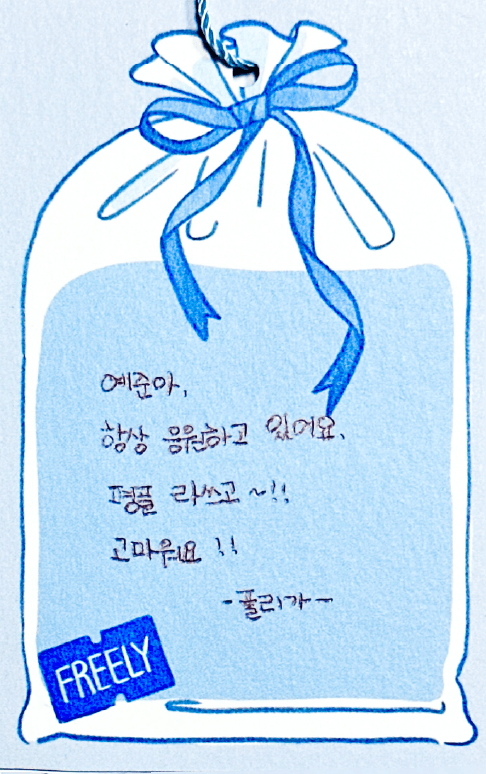 예준아,
항상 응원하고 있어요.
평플 라쓰고 ~!!
고마워요 !!
-플리가-
FREELY